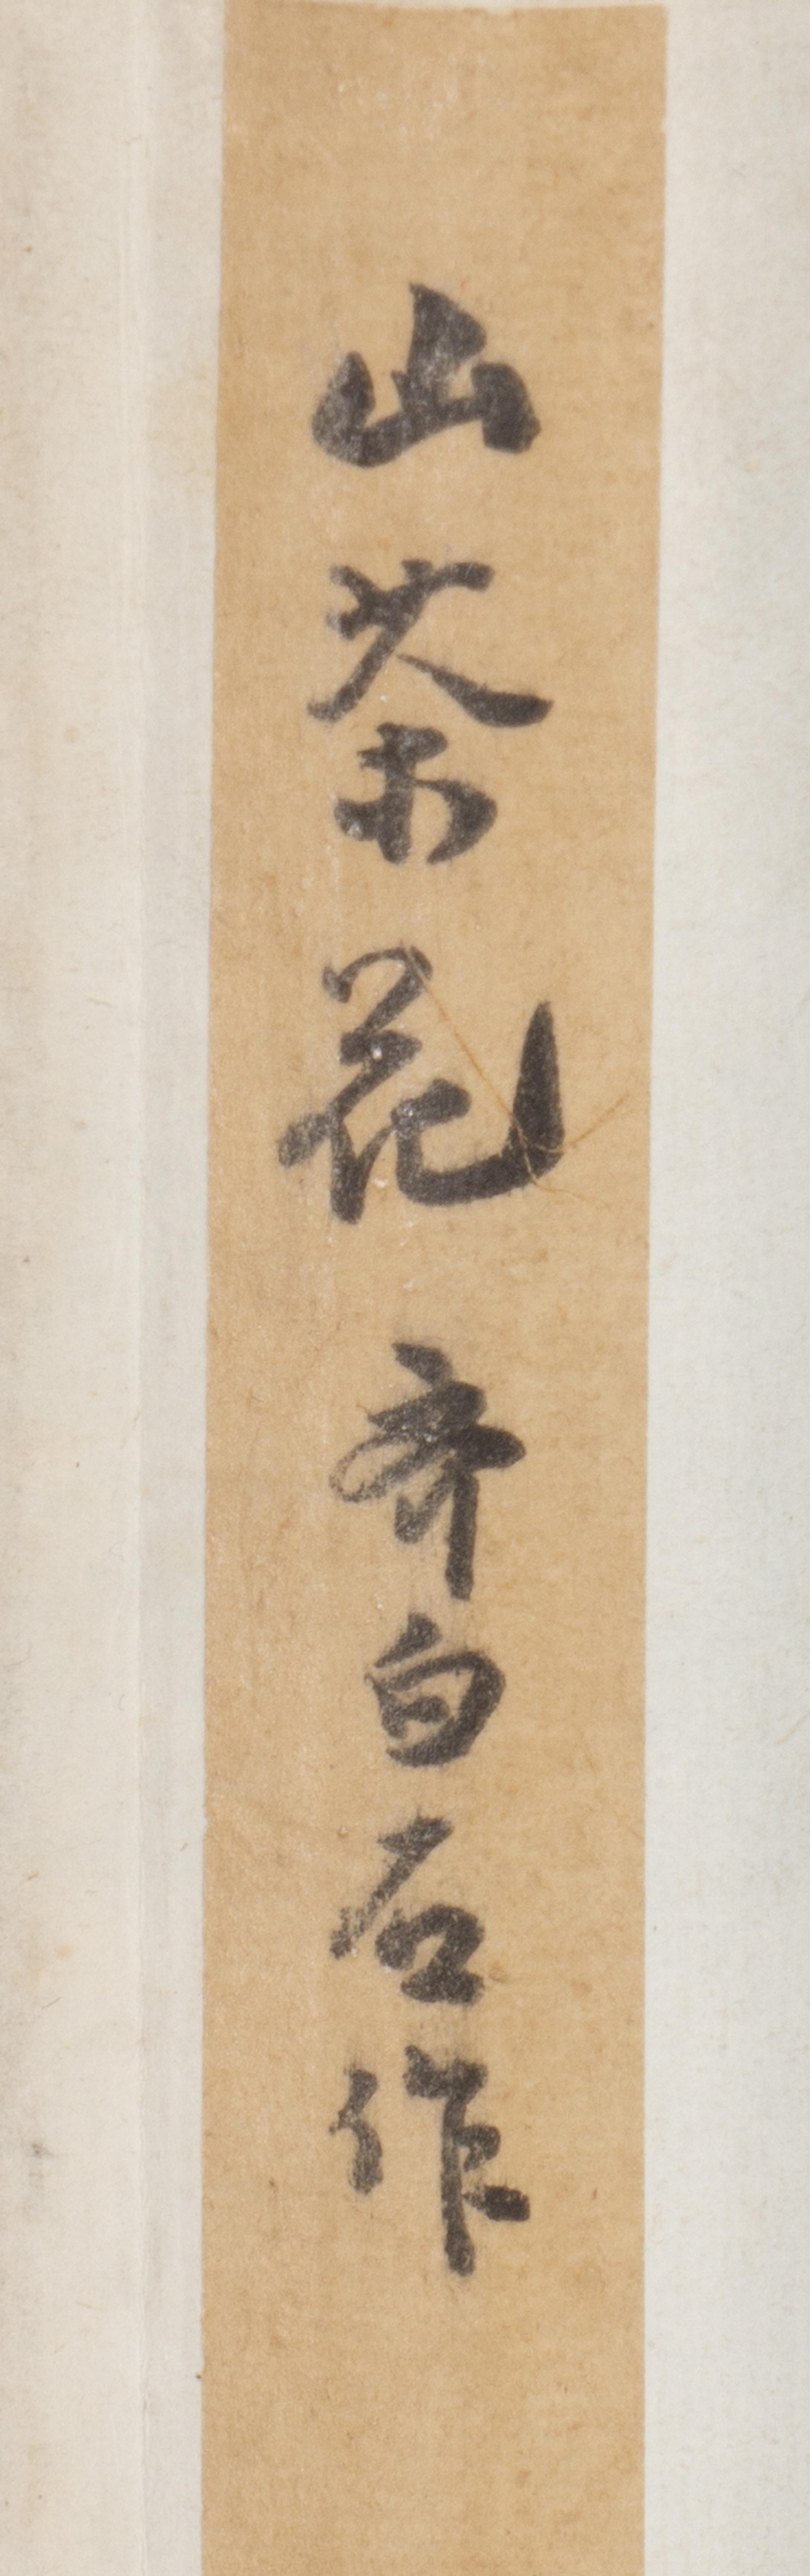 山茶花 齐白石作